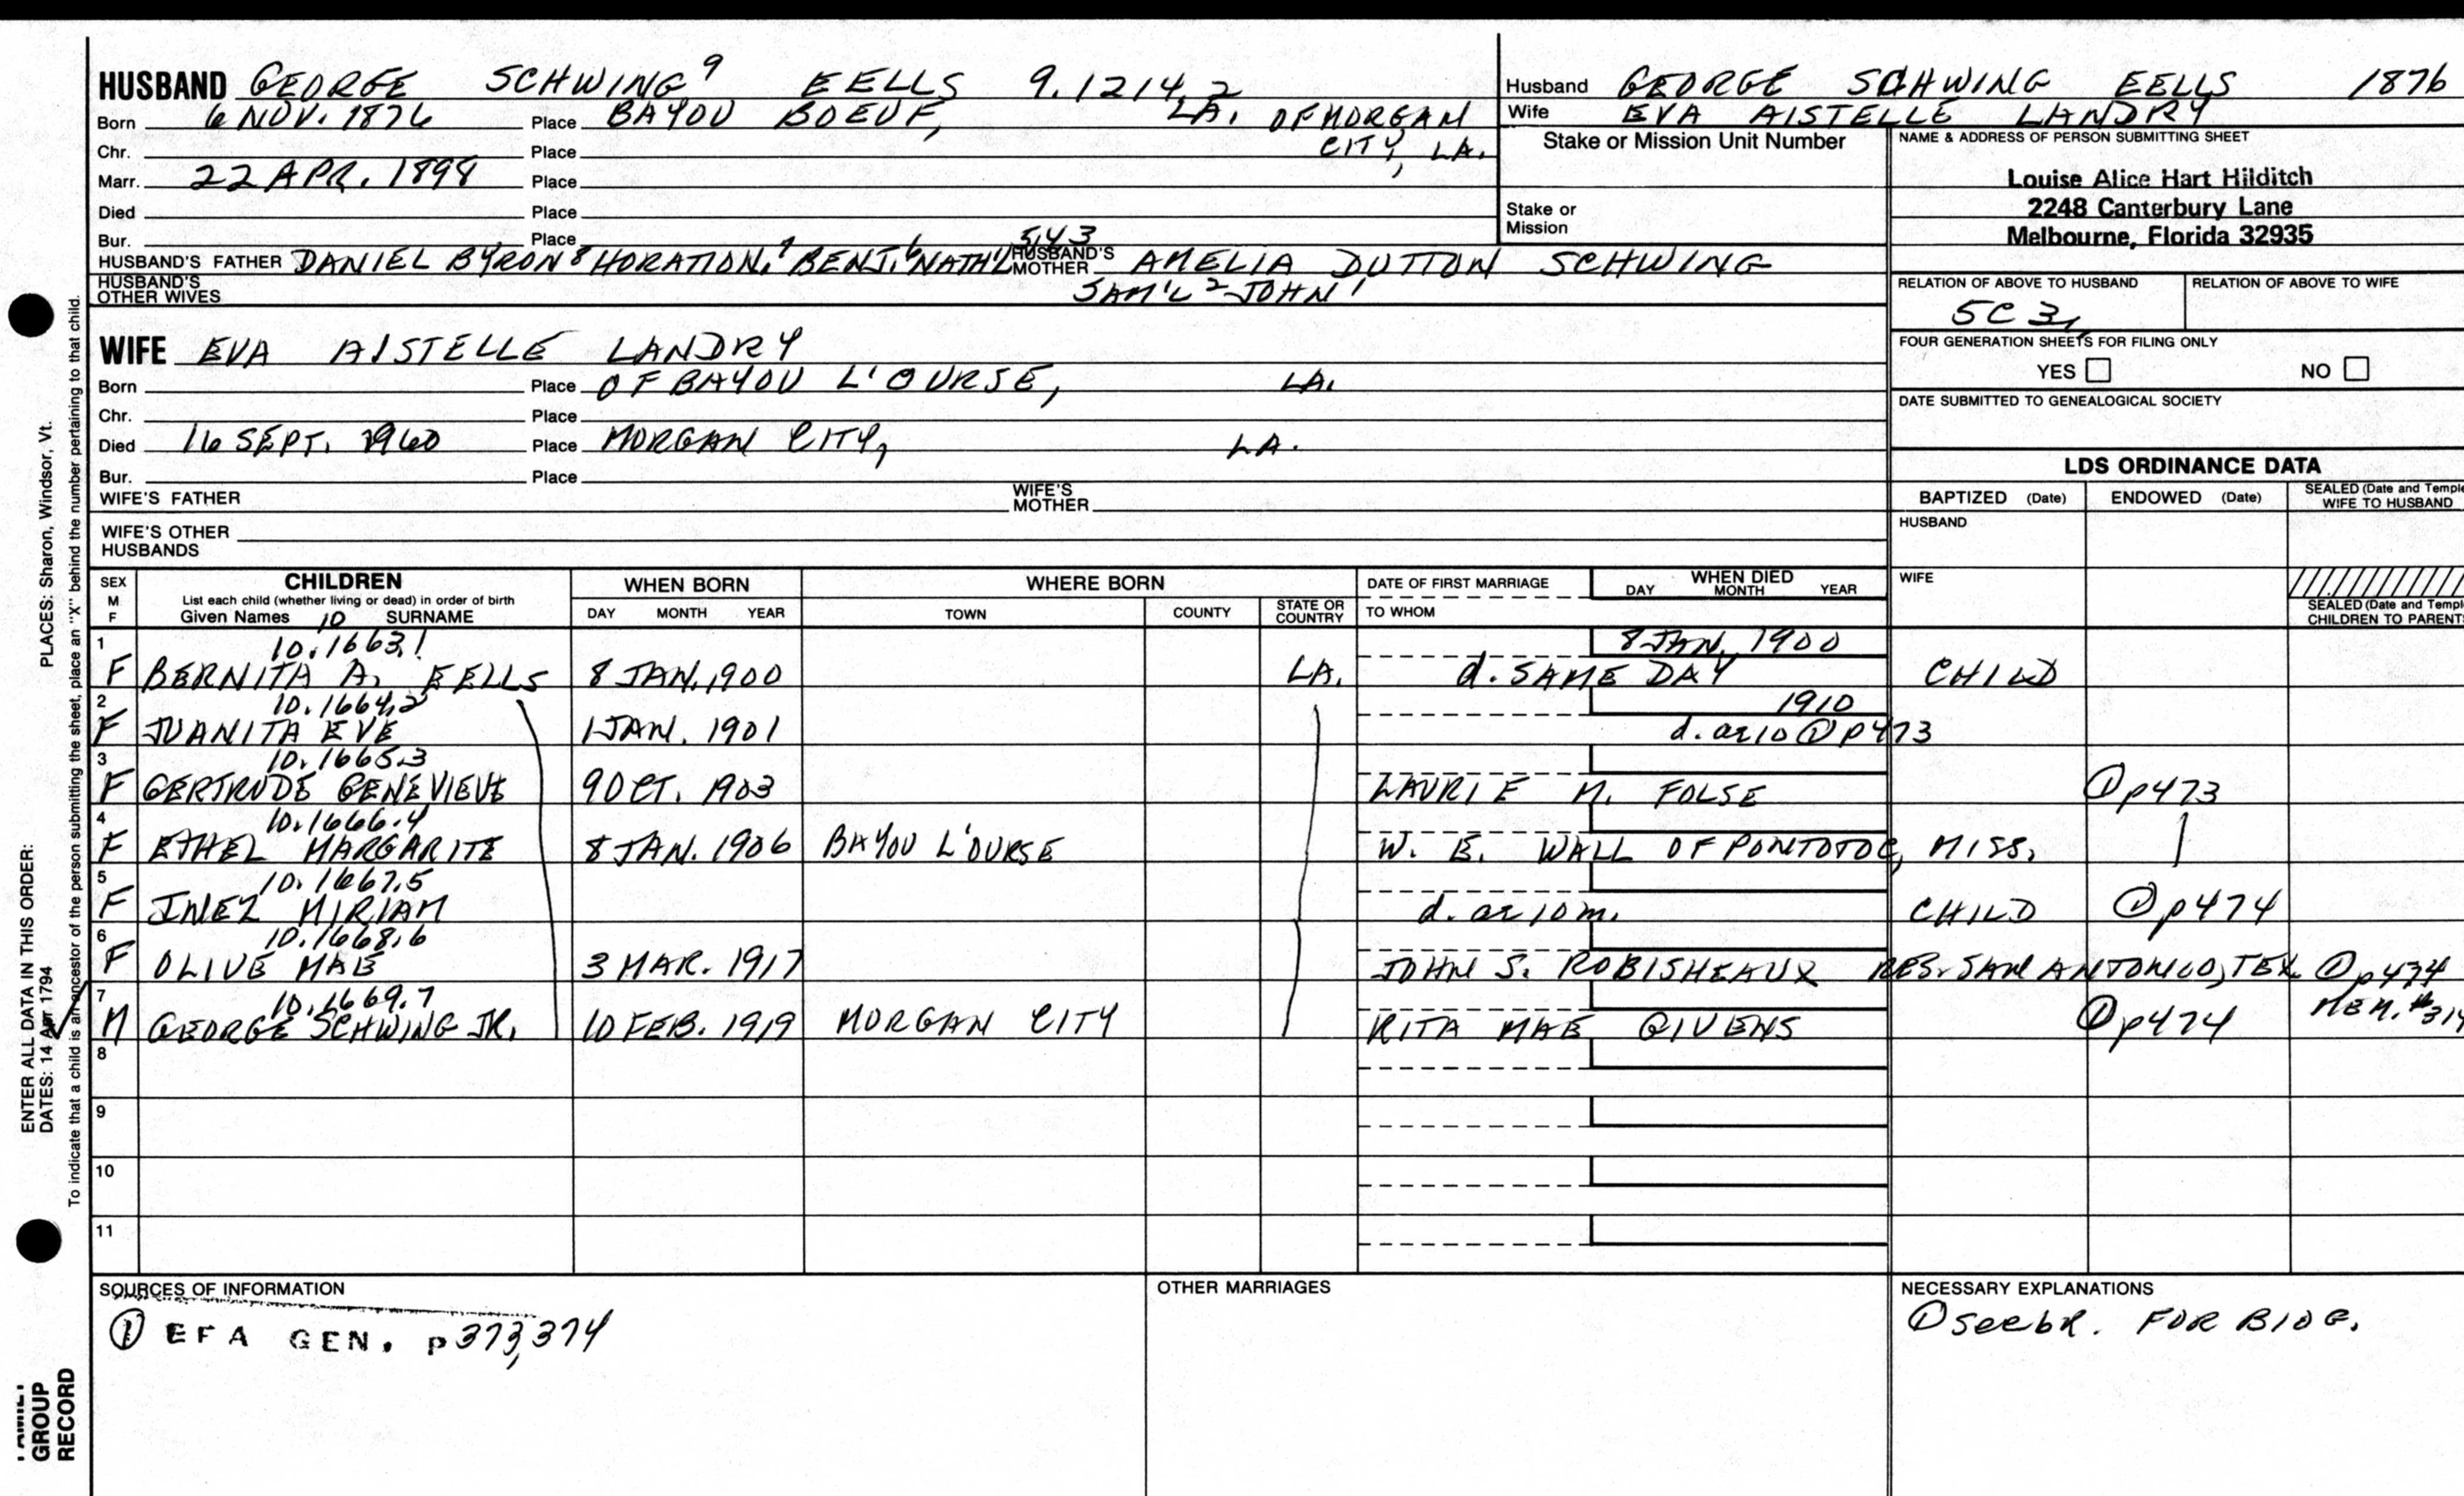 HUSBAND GEORGE SCHWING 9 EELLS 9.1214.2
Born 6 NOV. 1876 Place BAYOU BOEUF, LA. OF MORGAN
Chr. Place CITY, LA.
Marr. 22 APR. 1898 Place
Died Place
Bur. Place
HUSBAND'S FATHER DANIEL BYRON 8 HORATION, 7 BENJ. 6 NATH'L 5,4,3 HUSBAND'S MOTHER AMELIA DUTTON SCHWING
HUSBAND'S OTHER WIVES SAM'L 2 JOHN 1
Husband GEORGE SCHWING EELLS 1876
Wife EVA AISTELLE LANDRY
Stake or Mission Unit Number
Stake or Mission
NAME & ADDRESS OF PERSON SUBMITTING SHEET
Louise Alice Hart Hilditch
2248 Canterbury Lane
Melbourne, Florida 32935
RELATION OF ABOVE TO HUSBAND RELATION OF ABOVE TO WIFE
5C 3
FOUR GENERATION SHEETS FOR FILING ONLY
YES NO
DATE SUBMITTED TO GENEALOGICAL SOCIETY
WIFE EVA AISTELLE LANDRY
Born Place OF BAYOU L'OURSE, LA.
Chr. Place
Died 16 SEPT. 1960 Place MORGAN CITY, LA.
Bur. Place
WIFE'S FATHER WIFE'S MOTHER
WIFE'S OTHER HUSBANDS
LDS ORDINANCE DATA
BAPTIZED (Date) ENDOWED (Date) SEALED (Date and Temple WIFE TO HUSBAND
HUSBAND
WIFE
SEALED (Date and Templ CHILDREN TO PARENT
SEX M F CHILDREN WHEN BORN WHERE BORN DATE OF FIRST MARRIAGE WHEN DIED
List each child (whether living or dead) in order of birth
Given Names 10 SURNAME DAY MONTH YEAR TOWN COUNTY STATE OR COUNTRY TO WHOM DAY MONTH YEAR
1 10.1663.1 8 JAN. 1900
F BERNITA A. EELLS 8 JAN. 1900 LA. d. SAME DAY CHILD
2 10.1664.2 1910
F JUANITA EVE 1 JAN. 1901 d. ae 10 ① p473
3 10.1665.3
F GERTRUDE GENEVIEVE 9 OCT. 1903 LAURIE M. FOLSE ① p473
4 10.1666.4
F ETHEL MARGARITE 8 JAN. 1906 BAYOU L'OURSE W. E. WALL OF PONTOTOC, MISS.
5 10.1667.5
F INEZ MIRIAM d. ae 10 m. CHILD ① p474
6 10.1668.6
F OLIVE MAE 3 MAR. 1917 JOHN S. ROBISHEAUX RES. SAN ANTONIO, TEX ① p474
7 10.1669.7 MEM. #314
M GEORGE SCHWING JR. 10 FEB. 1919 MORGAN CITY RITA MAE GIVENS ① p474
8
9
10
11
SOURCES OF INFORMATION OTHER MARRIAGES NECESSARY EXPLANATIONS
① EFA GEN. p 373,374
① see bk. FOR BIOG.
ENTER ALL DATA IN THIS ORDER:
DATES: 14 Apr 1794
PLACES: Sharon, Windsor, Vt.
To indicate that a child is an ancestor of the person submitting the sheet, place an "X" behind the number pertaining to that child.
GROUP
RECORD